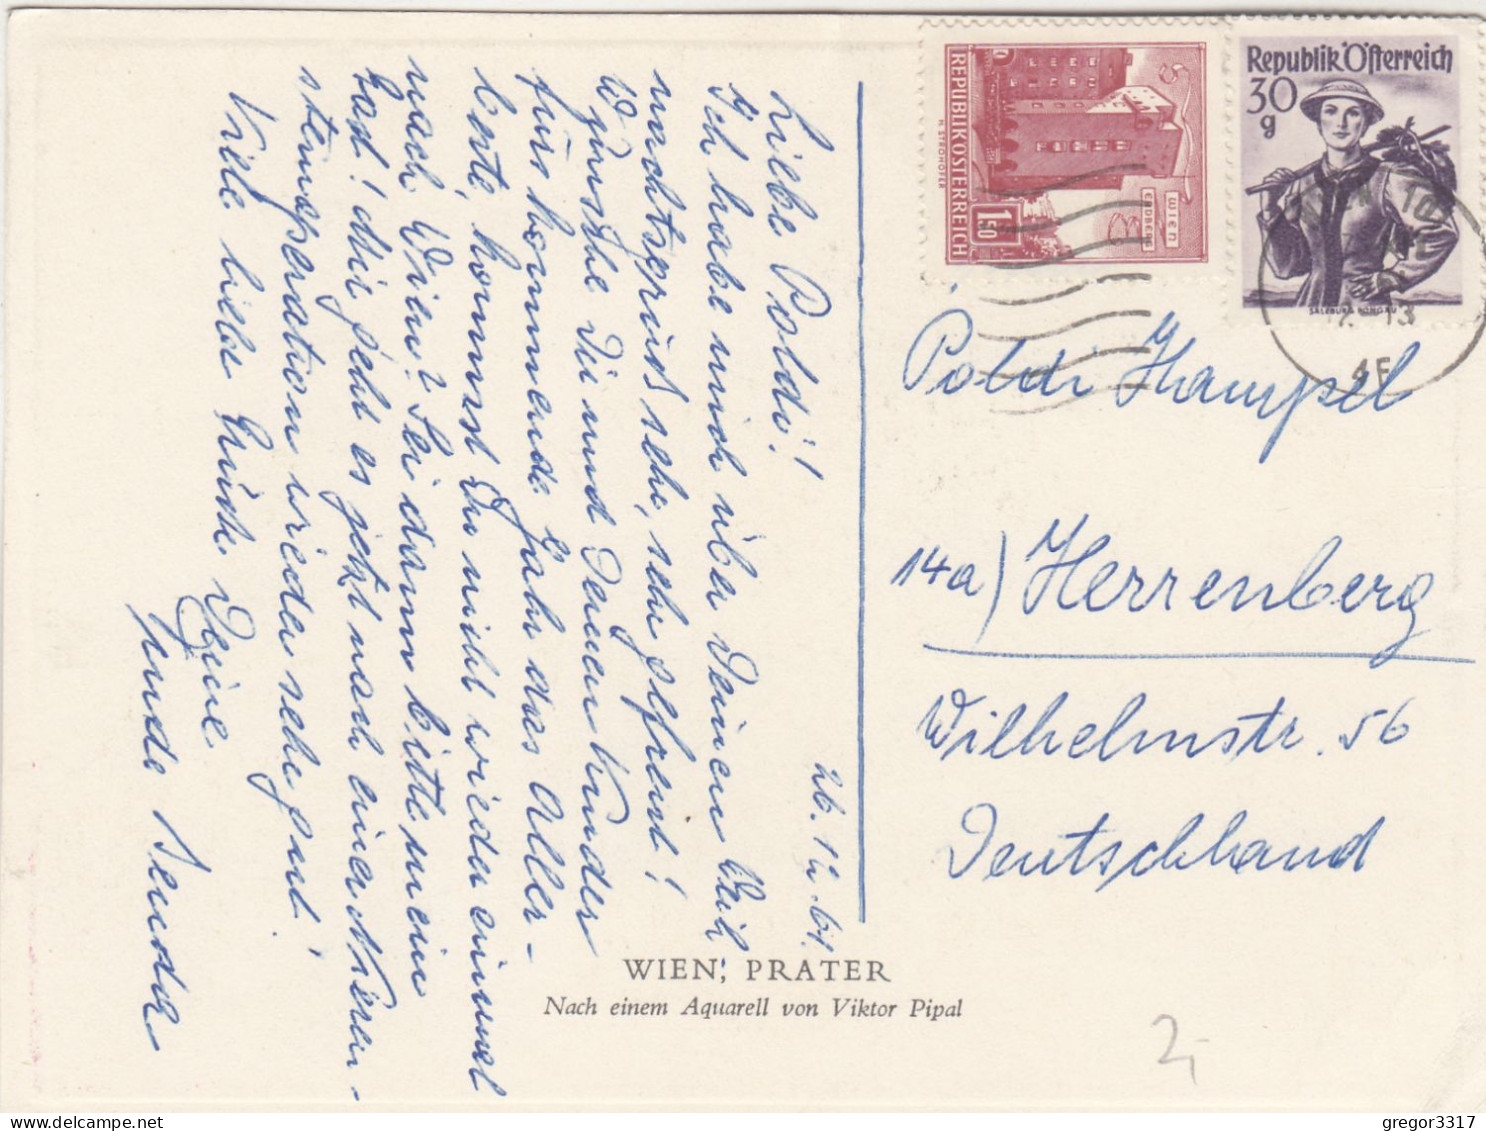 26. 12. 61.
Liebe Poldi!
Ich habe mich über Deinen Weih-
nachtsgruß sehr, sehr gefreut!
Wünsche Dir und Deinen Kinder
fürs kommende Jahr das Aller-
beste, kommst Du nicht wieder einmal
nach Wien? Sei dann bitte mein
Gast! Mir geht es jetzt nach einer Nieren-
steinoperation wieder sehr gut!
Viele liebe Grüße Deine
REPUBLIK ÖSTERREICH
1.50
WIEN
ERDBERG
H. STROHOFER
Republik Österreich
30
g
SALZBURG PONGAU
Poldi Hampel
14a) Herrenberg
Wilhelmstr. 56
Deutschland
WIEN, PRATER
Nach einem Aquarell von Viktor Pipal
2,-
gregor3317